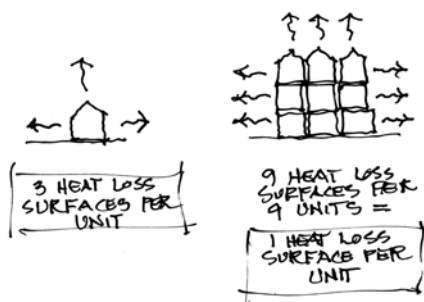 3 HEAT LOSS
SURFACES PER
UNIT
9 HEAT LOSS
SURFACES PER
9 UNITS =
1 HEAT LOSS
SURFACE PER
UNIT